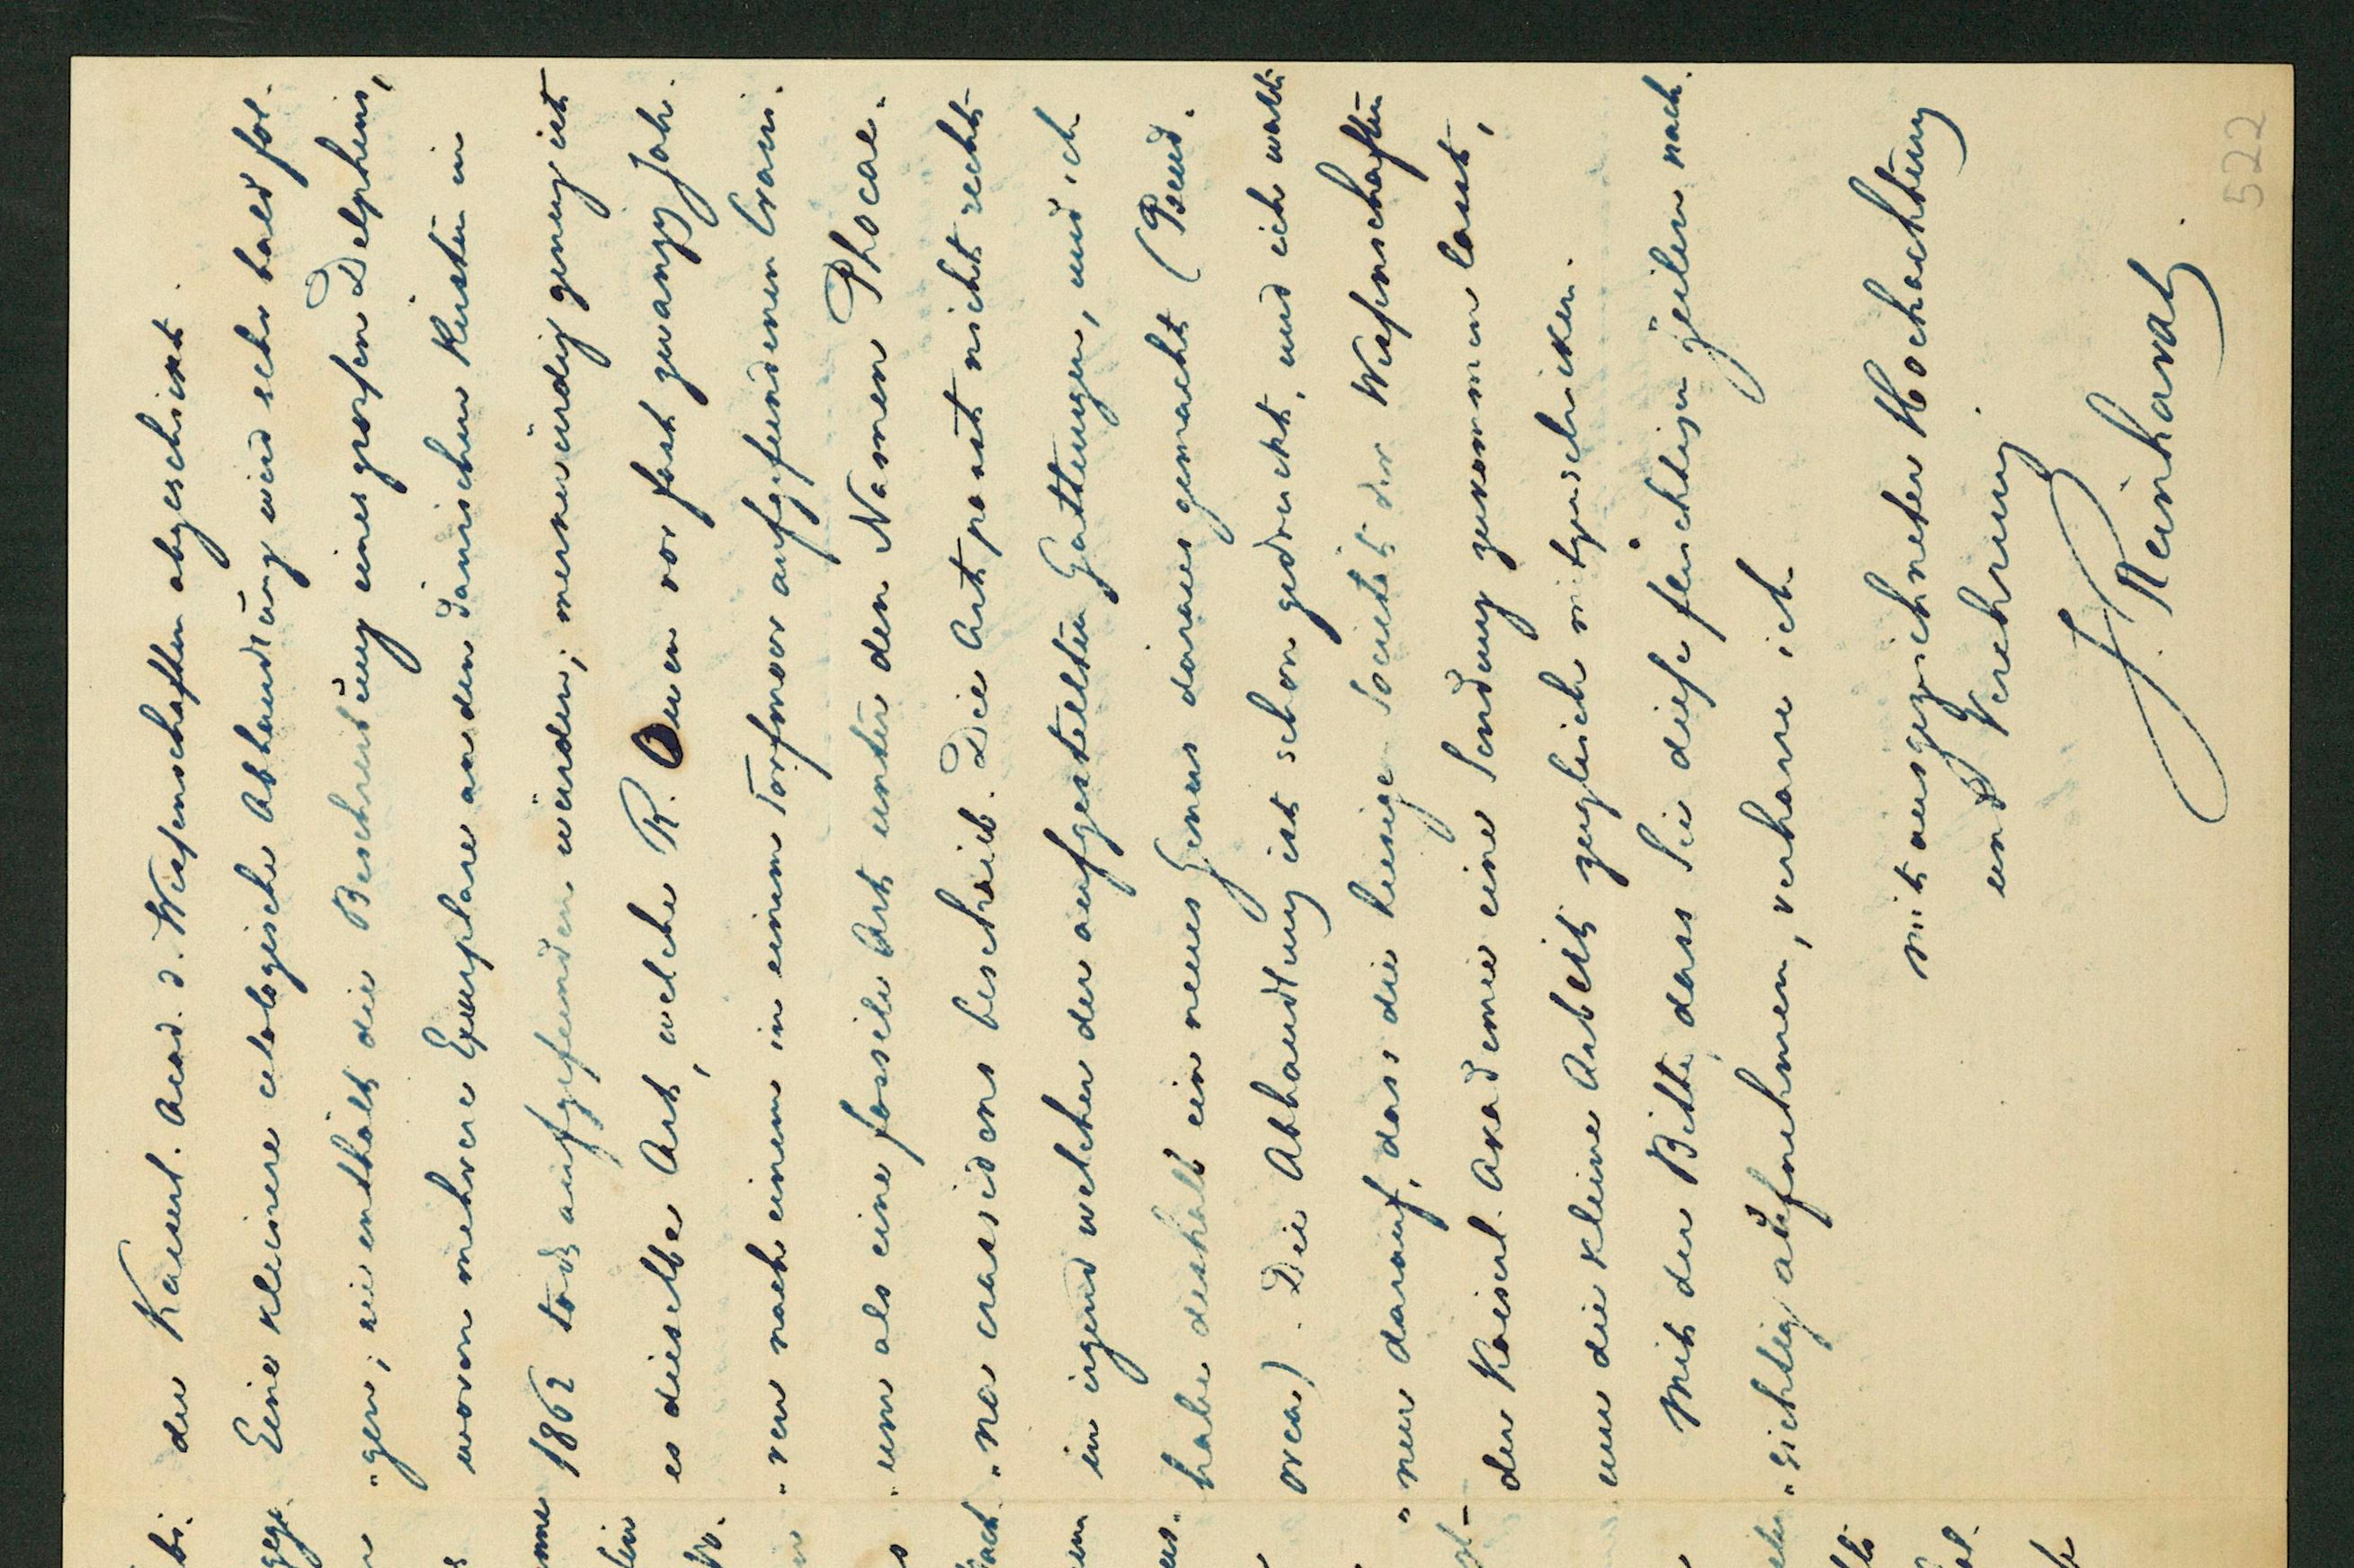 522
der Kaiserl. Acad. d. Wissenschaften abgeschickt.
Eine kleinere cetologische Abhandlung wird sehr bald fol-
"gen; sie enthält die Beschreibung eines grossen Delphins,
wovon mehrere Exemplare an den dänischen Küsten in
1862 todt aufgefunden würden; merkwürdig genug ist
es dieselbe Art, welche R. Owen vor fast zwanzig Jah-
"ren nach einem in einem Torfmoor aufgefundenen Crani-
"um als eine fossile Art unter den Namen Phocae-
"na crassidens beschrieb. Die Art passt nicht recht
in irgend welcher der aufgestellten Gattungen, und ich
habe deshalb ein neues Genus daraus gemacht (Pseud-
orca). Die Abhandlung ist schon gedruckt, und ich warte
"nur darauf, dass die hiesige Societät der Wissenschaften
der Kaiserl. Akademie eine Sendung zukommen lasst,
um die kleine Arbeit zugleich mitzuschicken.
Mit der Bitte, dass Sie diese flüchtigen Zeilen nach-
"sichtig aufnehmen, verharre ich
mit ausgezeichneter Hochachtung
und Verehrung.
J. Reinhardt.